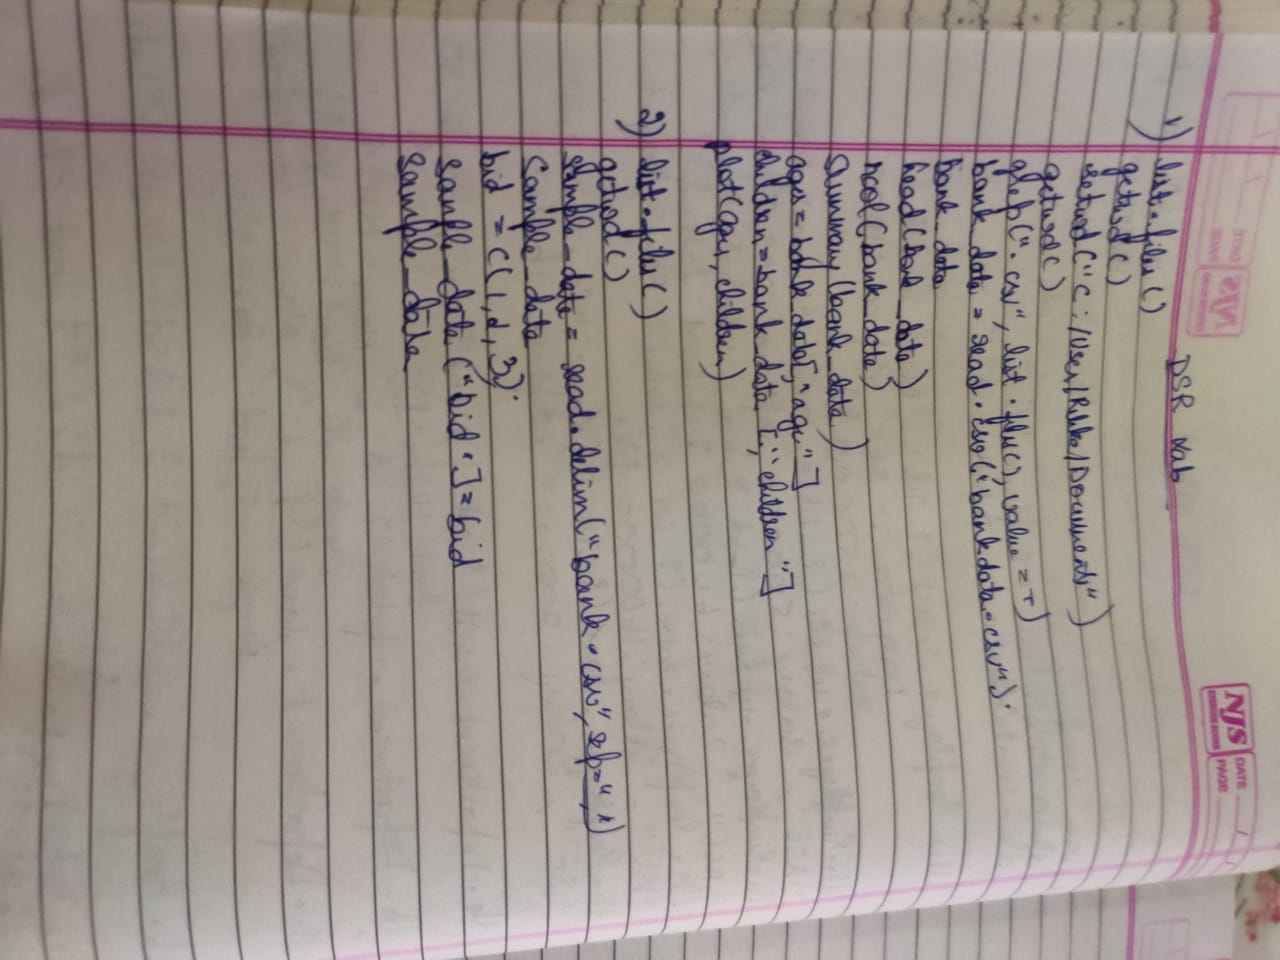 NJS
DATE
PAGE
DSR Lab
1) list.files()
getwd()
setwd("C:/User/Ritika/Documents")
getwd()
grep(".csv", list.files(), value = T)
bank_data = read.csv("bankdata.csv").
bank_data
head(bank_data)
ncol(bank_data)
summary(bank_data)
ages = bank_data[,"age"]
children = bank_data[,"children"]
plot(ages, children)
2) list.files()
getwd()
sample_data = read.delim("bank.csv", sep=",")
sample_data
bid = c(1,2,3).
sample_data["bid"] = bid
sample_data